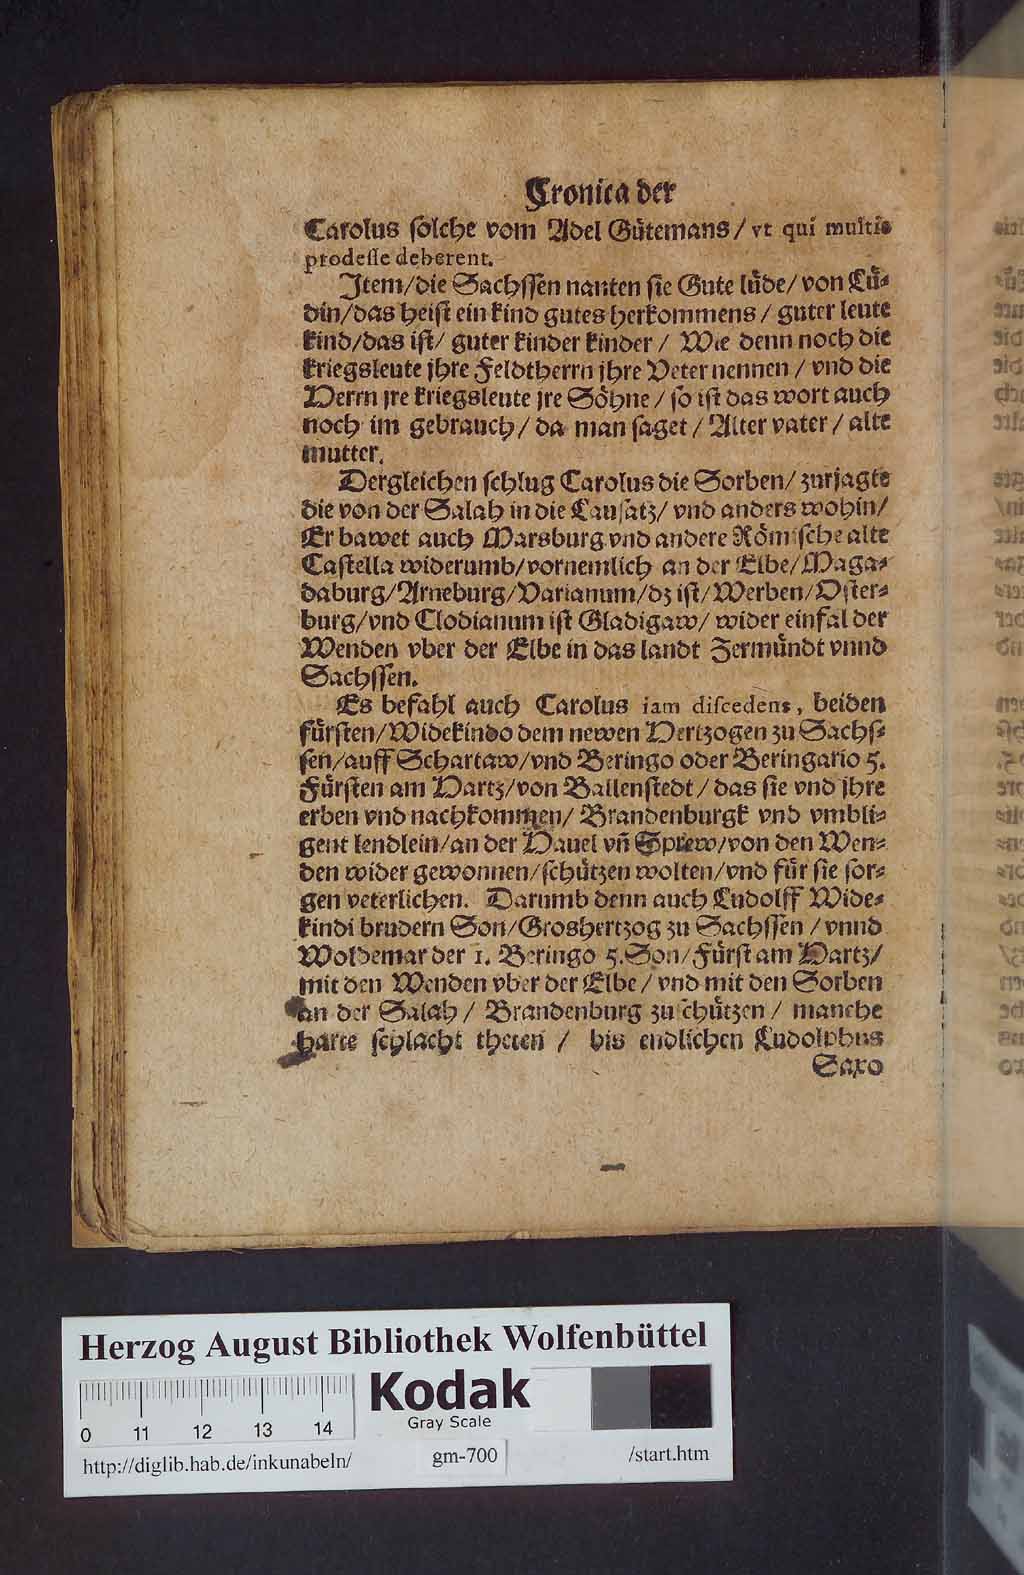 Cronica der
Carolus solche vom Adel Gütemans / vt qui multis
prodesse deberent.
Item/die Sachssen nanten sie Gute lüde/von Lü-
din/das heist ein kind gutes herkommens / guter leute
kind/das ist/ guter kinder kinder / Wie denn noch die
kriegsleute jhre Feldtherrn jhre Veter nennen / vnd die
Herrn jre kriegsleute jre Söhne / so ist das wort auch
noch im gebrauch/ da man saget / Alter vater / alte
mutter.
Dergleichen schlug Carolus die Sorben/ zurjagte
die von der Salah in die Lausatz/ vnd anders wohin/
Er bawet auch Marsburg vnd andere Römische alte
Castella widerumb/vornemlich an der Elbe/Maga-
daburg/Arneburg/Varianum/dz ist/Werben/Oster-
burg/vnd Clodianum ist Gladigaw/ wider einfal der
Wenden vber der Elbe in das landt Zermündt vnnd
Sachssen.
Es befahl auch Carolus iam discedens, beiden
fürsten/Widekindo dem newen Hertzogen zu Sachs-
sen/auff Schartaw/vnd Beringo oder Beringario 5.
Fürsten am Hartz/von Ballenstedt/das sie vnd jhre
erben vnd nachkommen/ Brandenburgk vnd vmbli-
gent lendlein/an der Hauel vñ Sprew/von den Wen-
den wider gewonnen/schützen wolten/vnd für sie sor-
gen veterlichen. Darumb denn auch Ludolff Wide-
kindi brudern Son/Groshertzog zu Sachssen / vnnd
Woldemar der 1. Beringo 5.Son/Fürst am Hartz/
mit den Wenden vber der Elbe / vnd mit den Sorben
an der Salah / Brandenburg zu schützen / manche
harte schlacht theten / bis endlichen Ludolphus
Saxo
Herzog August Bibliothek Wolfenbüttel
Kodak
Gray Scale
0 11 12 13 14
http://diglib.hab.de/inkunabeln/ gm-700 /start.htm